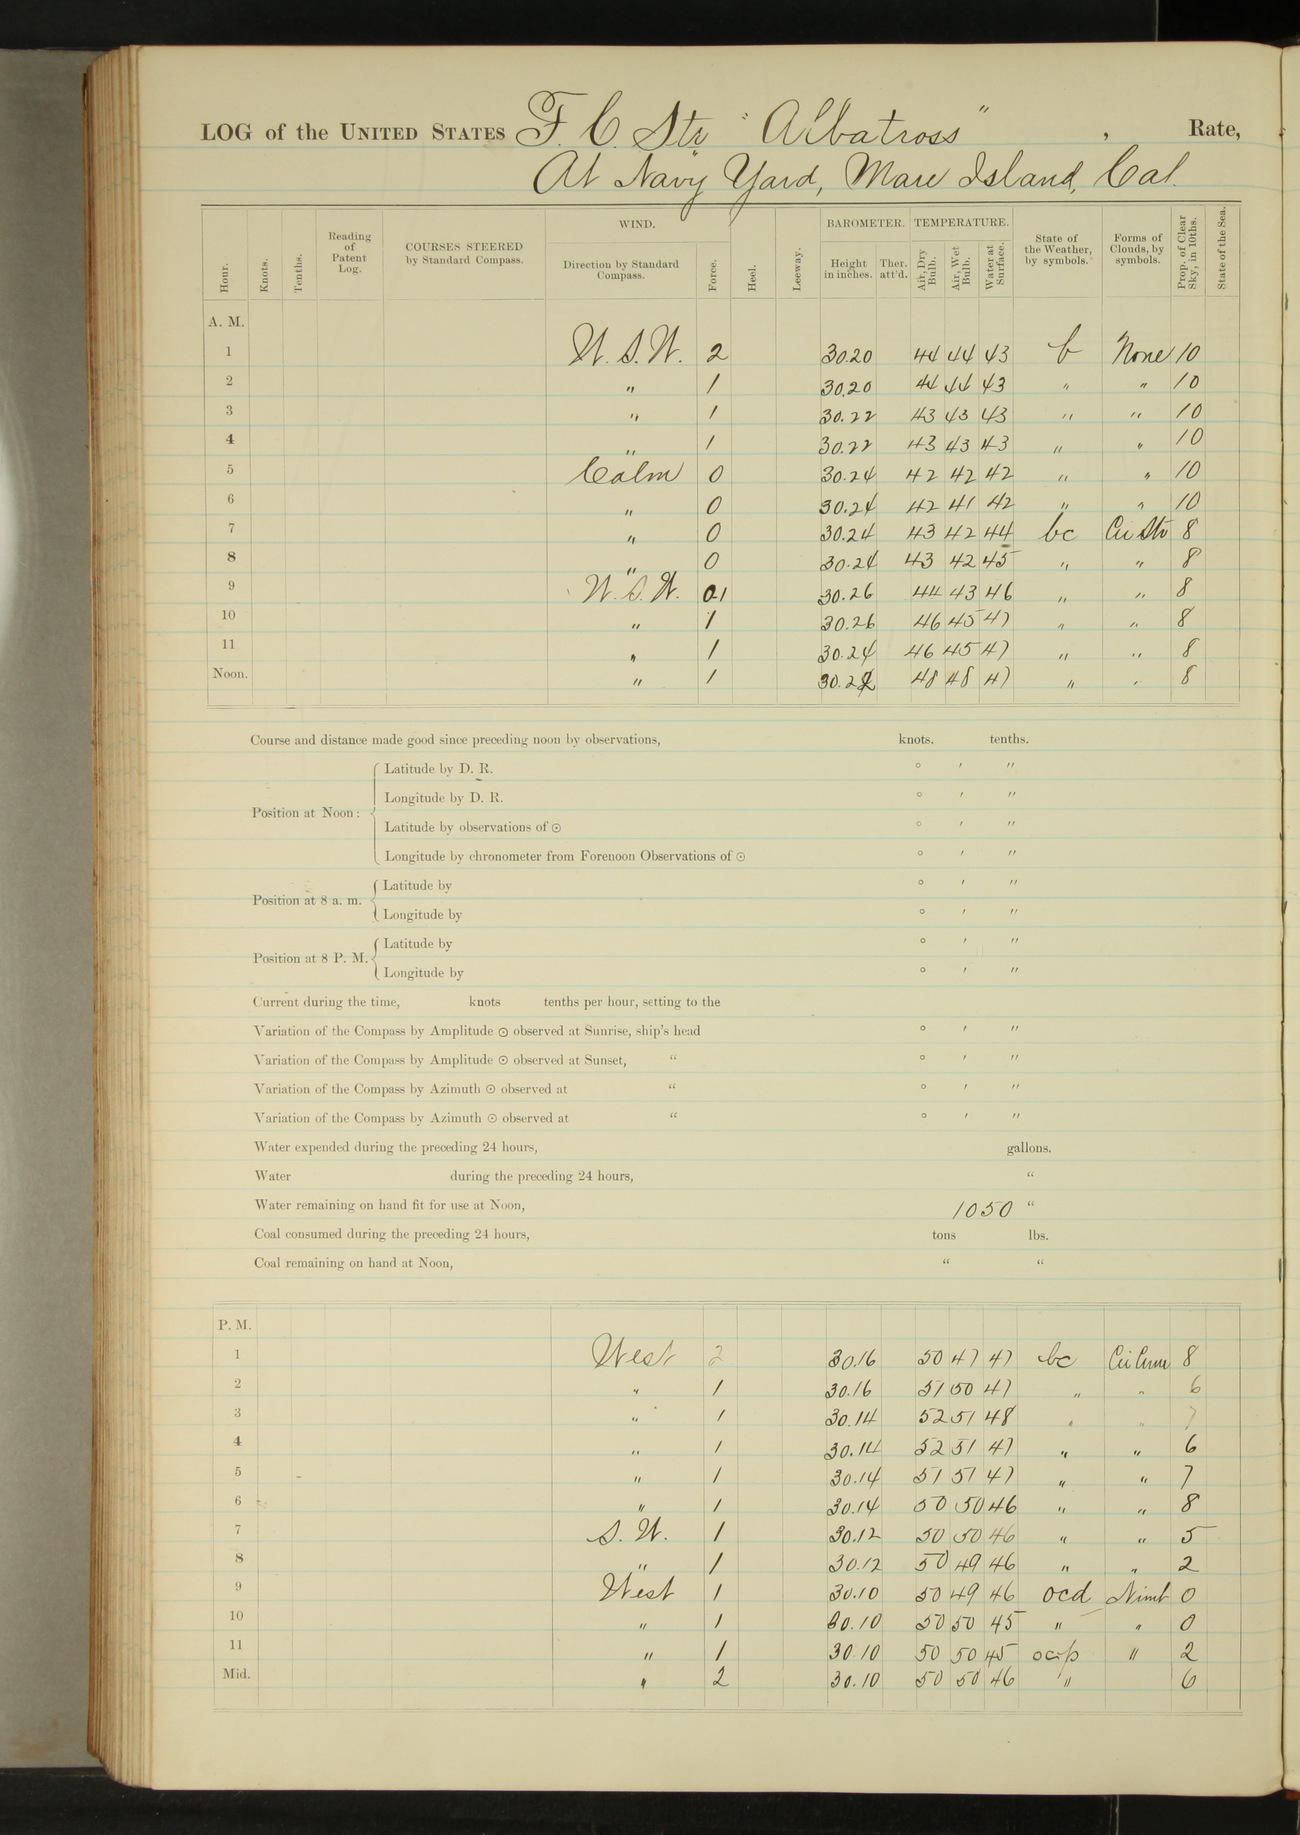 LOG of the UNITED STATES F. C. Str "Albatross", Rate,
At Navy Yard, Mare Island, Cal.
Hour. Knots. Tenths. Reading of Patent Log. COURSES STEERED by Standard Compass. WIND. Direction by Standard Compass. Force. Heel. Leeway. BAROMETER. Height in inches. Ther. att'd. TEMPERATURE. Air, Dry Bulb. Air, Wet Bulb. Water at Surface. State of the Weather, by symbols. Forms of Clouds, by symbols. Prop. of Clear Sky, in 10ths. State of the Sea.
A. M.
1 W. S. W. 2 30.20 44 44 43 b None 10
2 " 1 30.20 44 44 43 " " 10
3 " 1 30.22 43 43 43 " " 10
4 " 1 30.22 43 43 43 " " 10
5 Calm 0 30.24 42 42 42 " " 10
6 " 0 30.24 42 41 42 " " 10
7 " 0 30.24 43 42 44 bc Cii Str 8
8 " 0 30.24 43 42 45 " " 8
9 W. S. W. 01 30.26 44 43 46 " " 8
10 " 1 30.26 46 45 47 " " 8
11 " 1 30.24 46 45 47 " " 8
Noon. " 1 30.22 48 48 47 " " 8
Course and distance made good since preceding noon by observations, knots. tenths.
Position at Noon: Latitude by D. R. ° ′ ″
Longitude by D. R. ° ′ ″
Latitude by observations of ☉ ° ′ ″
Longitude by chronometer from Forenoon Observations of ☉ ° ′ ″
Position at 8 a. m. Latitude by ° ′ ″
Longitude by ° ′ ″
Position at 8 P. M. Latitude by ° ′ ″
Longitude by ° ′ ″
Current during the time, knots tenths per hour, setting to the
Variation of the Compass by Amplitude ☉ observed at Sunrise, ship's head ° ′ ″
Variation of the Compass by Amplitude ☉ observed at Sunset, " ° ′ ″
Variation of the Compass by Azimuth ☉ observed at " ° ′ ″
Variation of the Compass by Azimuth ☉ observed at " ° ′ ″
Water expended during the preceding 24 hours, gallons.
Water during the preceding 24 hours, "
Water remaining on hand fit for use at Noon, 1050 "
Coal consumed during the preceding 24 hours, tons lbs.
Coal remaining on hand at Noon, " "
P. M.
1 West 2 30.16 50 47 47 bc Cii Cum 8
2 " 1 30.16 51 50 47 " " 6
3 " 1 30.14 52 51 48 " " 7
4 " 1 30.14 52 51 47 " " 6
5 " 1 30.14 51 51 47 " " 7
6 " 1 30.14 50 50 46 " " 8
7 S. W. 1 30.12 50 50 46 " " 5
8 " 1 30.12 50 49 46 " " 2
9 West 1 30.10 50 49 46 ocd Nimb 0
10 " 1 30.10 50 50 45 " " 0
11 " 1 30.10 50 50 45 ocp " 2
Mid. " 2 30.10 50 50 46 " 6